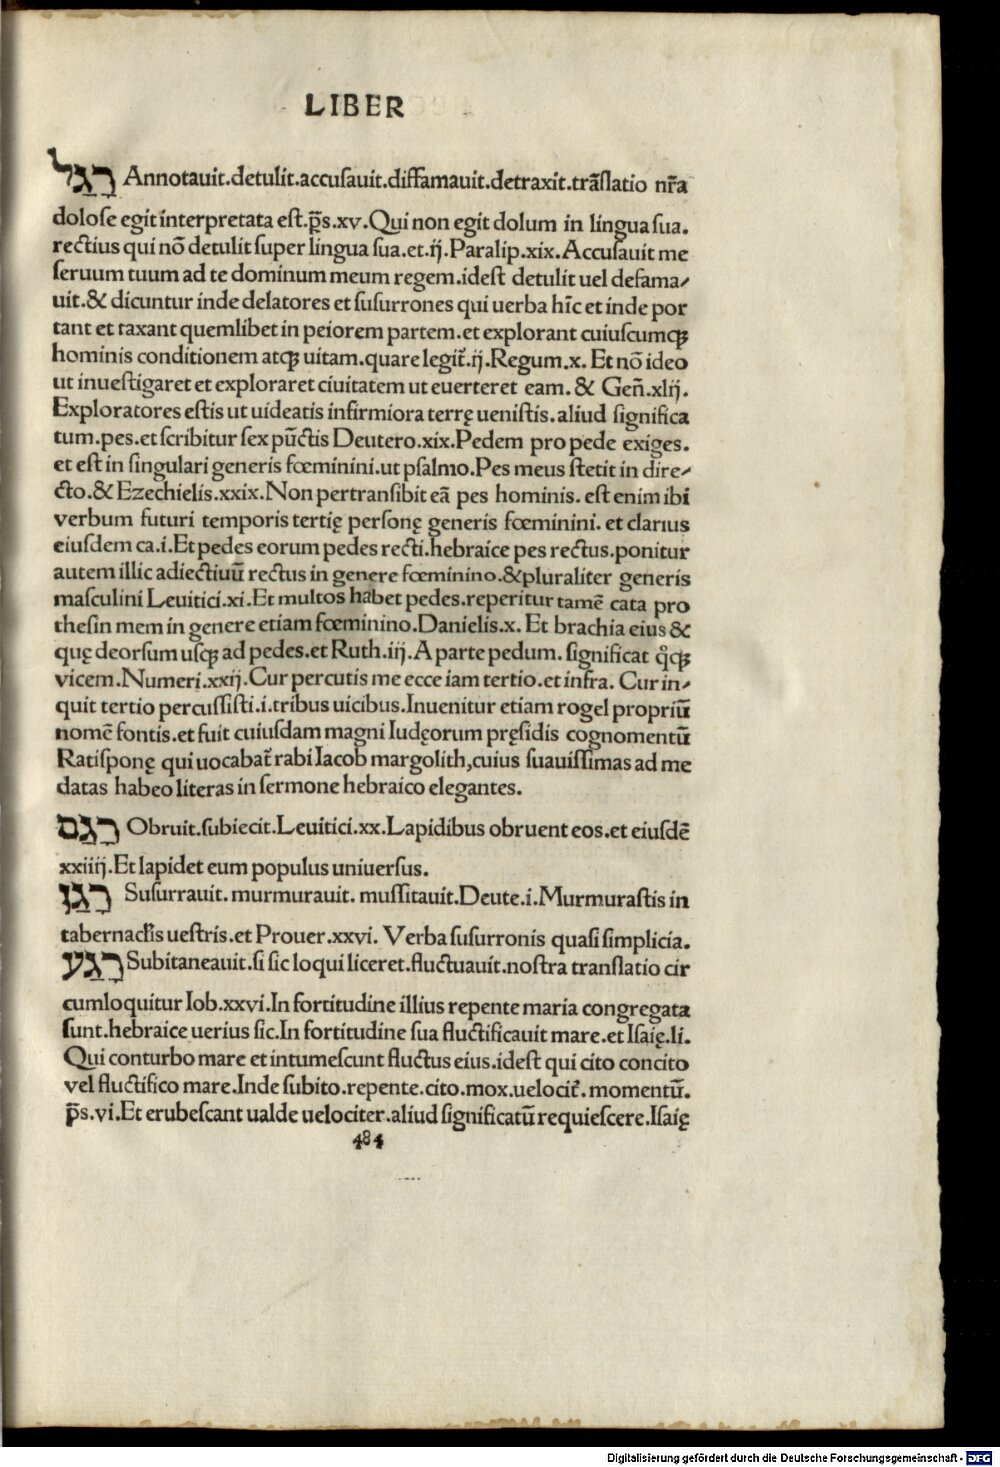 LIBER
רָגַל Annotauit.detulit.accusauit.diffamauit.detraxit.trãslatio nr̃a
dolose egit interpretata est.p̃s.xv.Qui non egit dolum in lingua sua.
rectius qui nõ detulit super lingua sua.et.ij.Paralip.xix.Accusauit me
seruum tuum ad te dominum meum regem.idest detulit uel defama-
uit.& dicuntur inde delatores et susurrones qui uerba hĩc et inde por
tant et taxant quemlibet in peiorem partem.et explorant cuiuscumqꝫ
hominis conditionem atqꝫ uitam.quare legit̃.ij.Regum.x. Et nõ ideo
ut inuestigaret et exploraret ciuitatem ut euerteret eam. & Geñ.xlij.
Exploratores estis ut uideatis infirmiora terrę uenistis.aliud significa
tum.pes.et scribitur sex pũctis Deutero.xix.Pedem pro pede exiges.
et est in singulari generis fœminini.ut psalmo.Pes meus stetit in dire-
cto.& Ezechielis.xxix.Non pertransibit eã pes hominis. est enim ibi
verbum futuri temporis tertię personę generis fœminini. et clarius
eiusdem ca.i.Et pedes eorum pedes recti.hebraice pes rectus.ponitur
autem illic adiectiuũ rectus in genere fœminino.&pluraliter generis
masculini Leuitici.xi.Et multos habet pedes.reperitur tamẽ cata pro
thesin mem in genere etiam fœminino.Danielis.x. Et brachia eius &
quę deorsum usqꝫ ad pedes.et Ruth.iij.A parte pedum. significat q̊qꝫ
vicem.Numeri.xxij.Cur percutis me ecce iam tertio.et infra. Cur in-
quit tertio percussisti.i.tribus uicibus.Inuenitur etiam rogel propriũ
nomẽ fontis.et fuit cuiusdam magni Iudęorum pręsidis cognomentũ
Ratisponę qui uocabat̃ rabi Iacob margolith,cuius suauissimas ad me
datas habeo literas in sermone hebraico elegantes.
רָגַם Obruit.subiecit.Leuitici.xx.Lapidibus obruent eos.et eiusdẽ
xxiiij.Et lapidet eum populus uniuersus.
רָגַן Susurrauit. murmurauit. mussitauit.Deute.i.Murmurastis in
tabernacl̃is uestris.et Prouer.xxvi. Verba susurronis quasi simplicia.
רָגַע Subitaneauit.si sic loqui liceret.fluctuauit.nostra translatio cir
cumloquitur Iob.xxvi.In fortitudine illius repente maria congregata
sunt.hebraice uerius sic.In fortitudine sua fluctificauit mare.et Isaię.li.
Qui conturbo mare et intumescunt fluctus eius.idest qui cito concito
vel fluctifico mare.Inde subito.repente.cito.mox.uelocit̃.momentũ.
p̃s.vi.Et erubescant ualde uelociter.aliud significatũ requiescere.Isaię
484
Digitalisierung gefördert durch die Deutsche Forschungsgemeinschaft - DFG